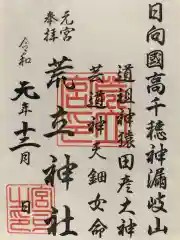 日向國高千穂神漏岐山
道祖神猿田彦大神
芸道神天鈿女命
荒立神社
元宮
奉拝
令和
元年十二月
日